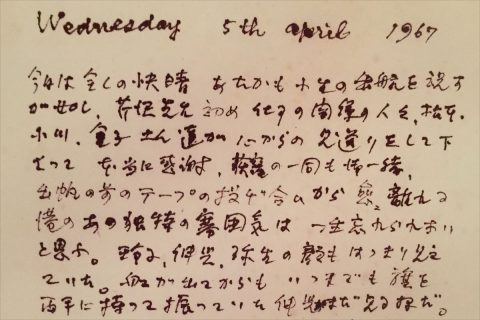 Wednesday 5th April 1967
今日は全くの快晴 あたかも小生の出航を祝すが如し、芹沢先生 初め 化学の関係の人々、
小川、金子さん達が心からの見送りをして下さって 本当に感謝、の一同も御一緒、
出帆の前のテープの投げ合いから 離れる
憶のあの独特の雰囲気は 一生忘れられまい
と思ふ。玲子、伸児、弥生の顔もはっきり見え
ていた。船が出てからも いつまでも 旗を
両手に持って振っていた 伸児はだ。